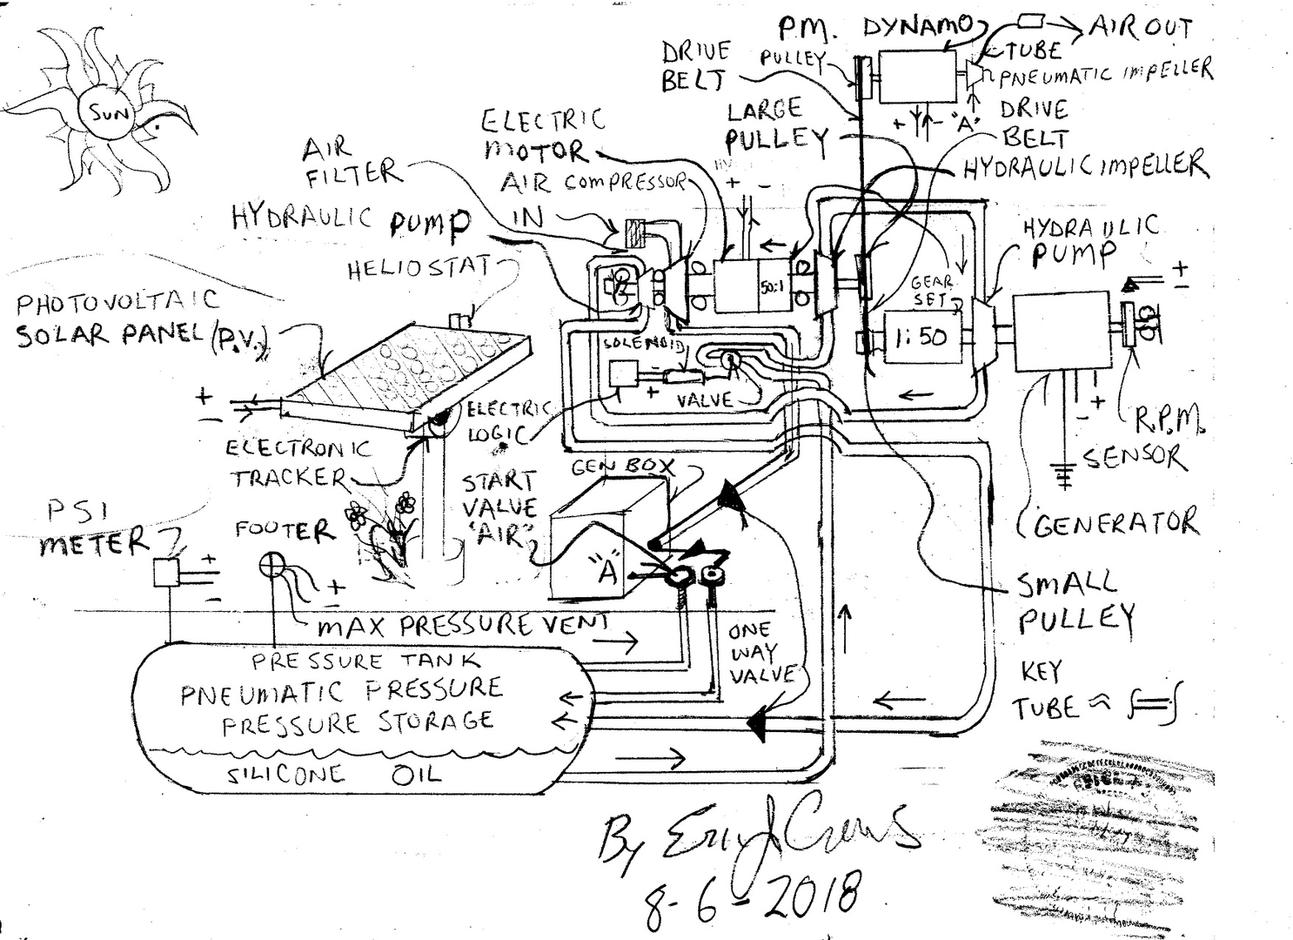 SUN
P.M. DYNAMO
AIR OUT
TUBE
PNEUMATIC IMPELLER
DRIVE
BELT
PULLEY
"A"
+ -
DRIVE
BELT
LARGE
PULLEY
HYDRAULIC IMPELLER
ELECTRIC
MOTOR
AIR COMPRESSOR
IN
AIR
FILTER
HYDRAULIC PUMP
HELIOSTAT
+ -
50:1
GEAR
SET
1:50
HYDRAULIC
PUMP
+
-
PHOTOVOLTAIC
SOLAR PANEL (P.V.)
+
-
SOLENOID
- +
VALVE
ELECTRIC
LOGIC
ELECTRONIC
TRACKER
R.P.M.
SENSOR
- +
GENERATOR
START
VALVE
"AIR"
GEN BOX
"A"
PSI
METER
+
-
FOOTER
+
-
MAX PRESSURE VENT
SMALL
PULLEY
ONE
WAY
VALVE
PRESSURE TANK
PNEUMATIC PRESSURE
PRESSURE STORAGE
SILICONE OIL
KEY
TUBE ≈
By Eric J Crews
8-6-2018